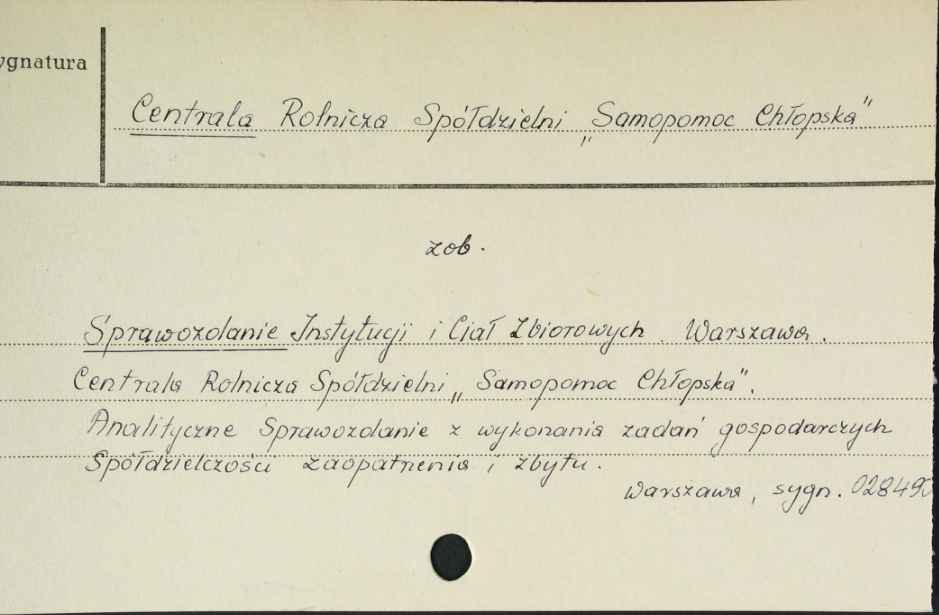 ygnatura
Centrala Rolnicza Spółdzielni „Samopomoc Chłopska"
zob.
Sprawozdanie Instytucji i Ciał Zbiorowych. Warszawa.
Centrala Rolnicza Spółdzielni „Samopomoc Chłopska".
Analityczne Sprawozdanie z wykonania zadań gospodarczych
Spółdzielczości zaopatrzenia i zbytu.
Warszawa, sygn. 028490